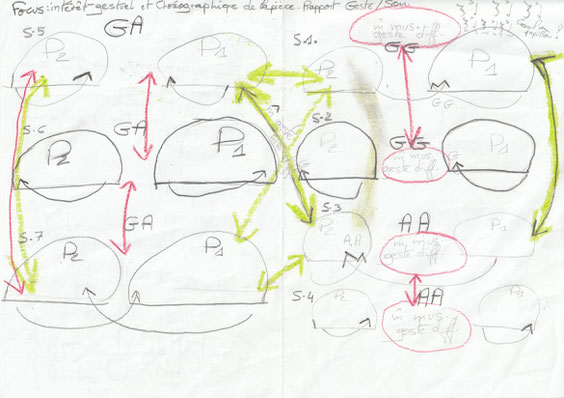 Focus: intérêt gestuel et Chorégraphique de la pièce. Rapport Geste/Son.
S.5
GA
P2
P1
S.1.
P2
m̂ mus.
geste diff.
GG
P1
GG
S.6
GA
P2
P1
S.2
P2
GG
m̂ mus.
geste diff.
P1
GA
S.7
P2
P1
S.3
P2
A.A
AA
m̂ mus.
geste diff.
P1
S.4
P2
AA
m̂ mus.
geste diff.
P1